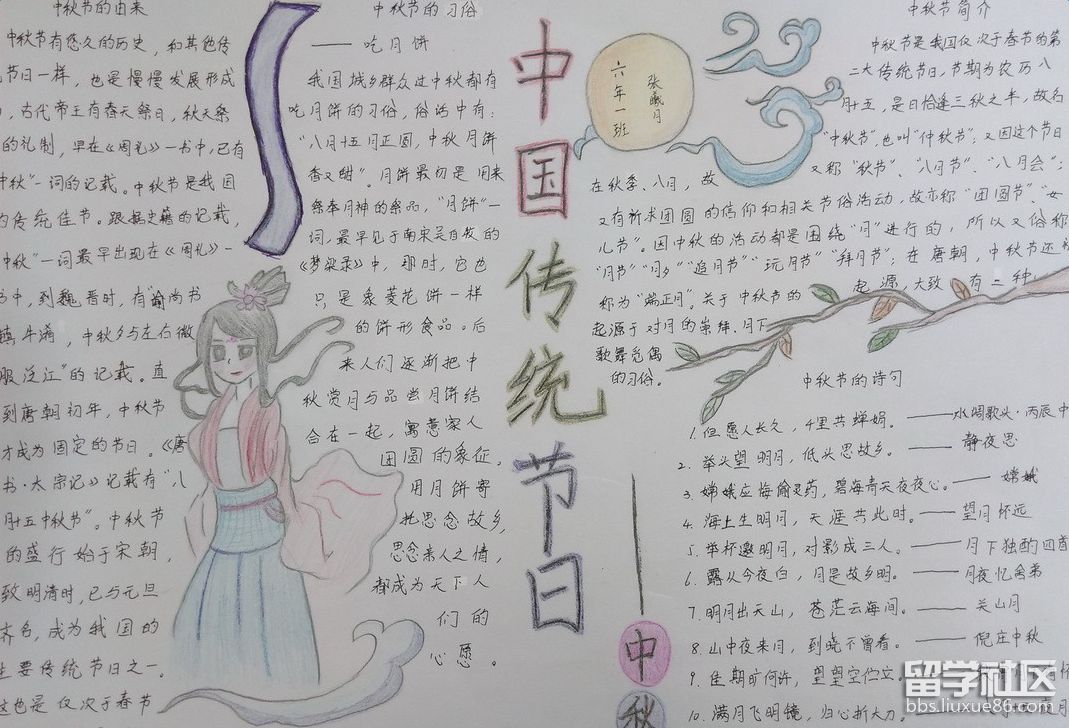 中秋节的由来
中秋节有悠久的历史，和其他传
节日一样，也是慢慢发展形成
，古代帝王有春天祭日，秋天祭
的礼制，早在《周礼》一书中，已有
中秋"一词的记载。中秋节是我国
的传统佳节。跟据史籍的记载，
中秋"一词最早出现在《周礼》一
书中，到魏晋时，有"谕尚书
镇牛渚，中秋夕与左右微
服泛江"的记载。直
到唐朝初年，中秋节
才成为固定的节日。《唐
书·太宗记》记载有"八
月十五中秋节"。中秋节
的盛行始于宋朝，
致明清时，已与元旦
齐名，成为我国的
主要传统节日之一。
这也是仅次于春节
中秋节的习俗
——吃月饼
我国城乡群众过中秋都有
吃月饼的习俗，俗话中有：
"八月十五月正圆，中秋月饼
香又甜"。月饼最初是用来
祭奉月神的祭品，"月饼"一
词，最早见于南宋吴自牧的
《梦梁录》中，那时，它也
只是象菱花饼一样
的饼形食品。后
来人们逐渐把中
秋赏月与品尝月饼结
合在一起，寓意家人
团圆的象征。
用月饼寄
托思念故乡，
思念亲人之情，
都成为天下人
们的
心愿。
中国传统节日
——中秋
张曦月
六年一班
中秋节简介
中秋节是我国仅次于春节的第
二大传统节日，节期为农历八
月十五，是日恰逢三秋之半，故名
"中秋节"，也叫"仲秋节"；又因这个节日
在秋季、八月，故又称"秋节"、"八月节"、"八月会"；
又有祈求团圆的信仰和相关节俗活动，故亦称"团圆节"、"女
儿节"。因中秋的活动都是围绕"月"进行的，所以又俗称
"月节""月夕""追月节""玩月节""拜月节"；在唐朝，中秋节还被
称为"端正月"。关于中秋节的起源，大致有二种：
起源于对月的崇拜、月下
歌舞觅偶
的习俗。
中秋节的诗句
1.但愿人长久，千里共蝉娟。——水调歌头·丙辰中
2.举头望明月，低头思故乡。——静夜思
3.嫦娥应悔偷灵药，碧海青天夜夜心。——嫦娥
4.海上生明月，天涯共此时。——望月怀远
5.举杯邀明月，对影成三人。——月下独酌四首
6.露从今夜白，月是故乡明。——月夜忆舍弟
7.明月出天山，苍茫云海间。——关山月
8.山中夜来月，到晓不曾看。——倪庄中秋
9.佳期旷何许，望望空伫立。
10.满月飞明镜，归心折大刀。
留学社区
bbs.liuxue86.com